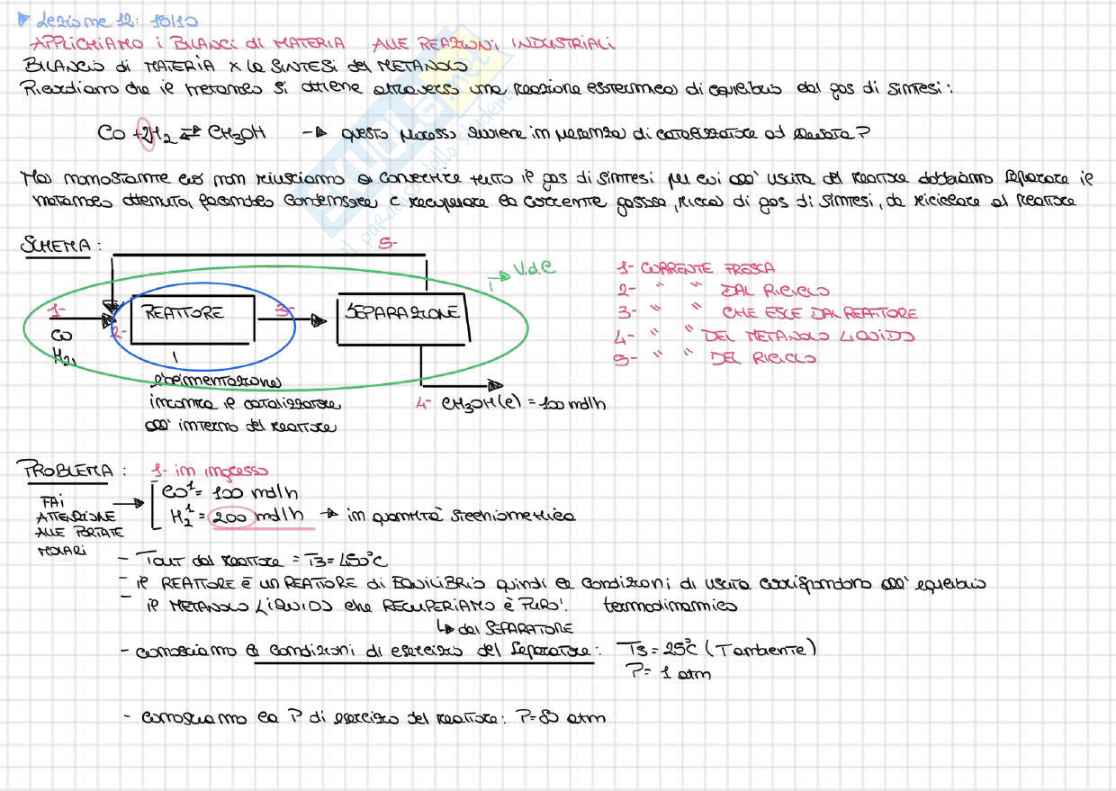 Lezione 12: 18/10
APPLICHIAMO i BILANCI di MATERIA ALLE REAZIONI INDUSTRIALI
BILANCIO di MATERIA x la SINTESI del METANOLO
Ricordiamo che il metanolo si ottiene attraverso una reazione esotermica di equilibrio dal gas di sintesi:
CO + 2H2 ⇄ CH3OH → questo processo avviene in presenza di catalizzatore ad elevata P
Ma nonostante ciò non riusciamo a convertire tutto il gas di sintesi per cui all' uscita del reattore dobbiamo separare il
metanolo ottenuto, facendolo condensare e recuperare la corrente gassosa, ricca di gas di sintesi, da riciclare al reattore
SCHEMA:
5-
V.d.C
1-
CO
H2
2-
REATTORE
3-
SEPARAZIONE
4- CH3OH(l) = 100 mol/h
alimentazione
incontra il catalizzatore
all' interno del reattore
1- CORRENTE FRESCA
2- " " DAL RICICLO
3- " " CHE ESCE DAL REATTORE
4- " " DEL METANOLO LIQUIDO
5- " " DEL RICICLO
PROBLEMA: 1- in ingresso
FAI
ATTENZIONE
ALLE PORTATE
MOLARI
CO¹ = 100 mol/h
H2¹ = 200 mol/h → in quantità stechiometrica
- Tout dal reattore = T3 = 150°C
- il REATTORE È UN REATTORE di EQUILIBRIO quindi le condizioni di uscita corrispondono all' equilibrio
termodinamico
- il METANOLO LIQUIDO che RECUPERIAMO È PURO!
↳ dal SEPARATORE
- conosciamo le condizioni di esercizio del separatore: T5 = 25°C (Tambiente)
P = 1 atm
- conosciamo la P di esercizio del reattore: P = 80 atm